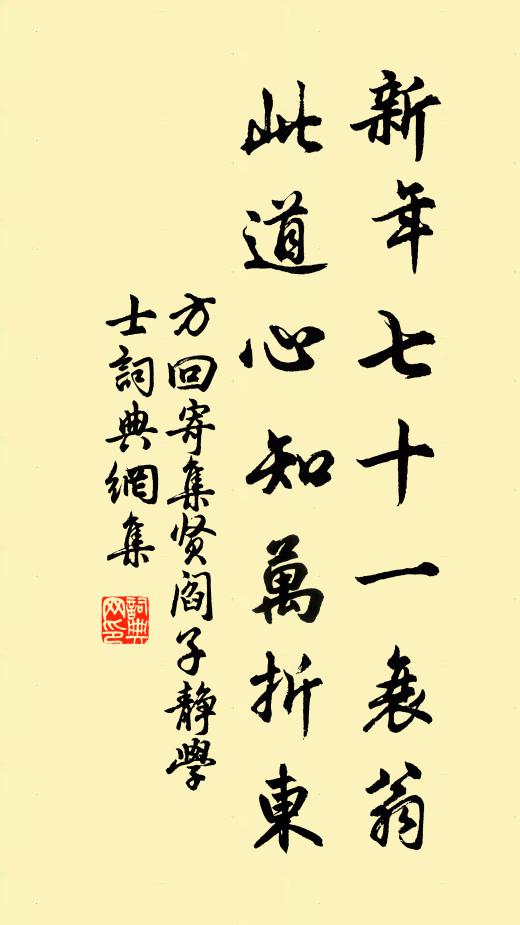 新年七十一衰翁
此道心知萬折東
方回寄集贤阎子静學
士詞典網集
詞典網印